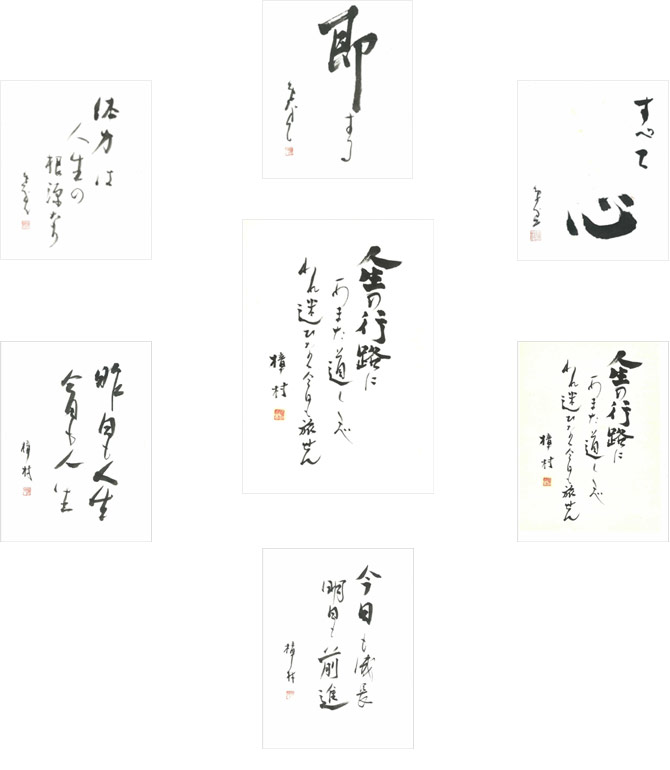 即
する
活力は
人生の
根源なり
すべて
心
人生の行路に
あまた道しるべ
われ迷ひなく今日も旅せん
樟村
昨日も人生
今日も人生
樟村
人生の行路に
あまた道しるべ
われ迷ひなく今日も旅せん
樟村
今日も成長
明日も前進
樟村